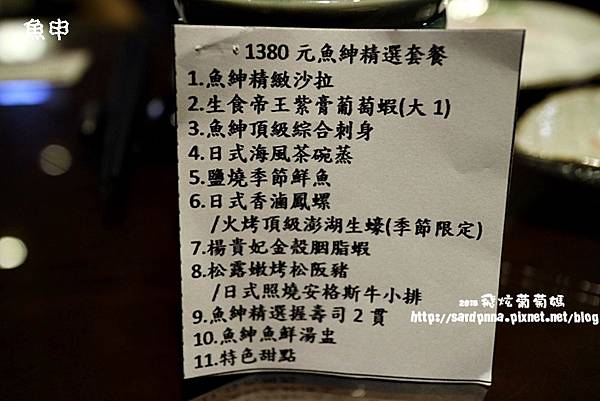 魚申
1380 元魚紳精選套餐
1.魚紳精緻沙拉
2.生食帝王紫膏葡萄蝦(大 1)
3.魚紳頂級綜合刺身
4.日式海風茶碗蒸
5.鹽燒季節鮮魚
6.日式香滷鳳螺
/火烤頂級澎湖生蠔(季節限定)
7.楊貴妃金殼胭脂蝦
8.松露嫩烤松阪豬
/日式照燒安格斯牛小排
9.魚紳精選握壽司 2 貫
10.魚紳魚鮮湯盅
11.特色甜點
2015 飛炫葡萄媽
http://sardpnna.pixnet.net/blog